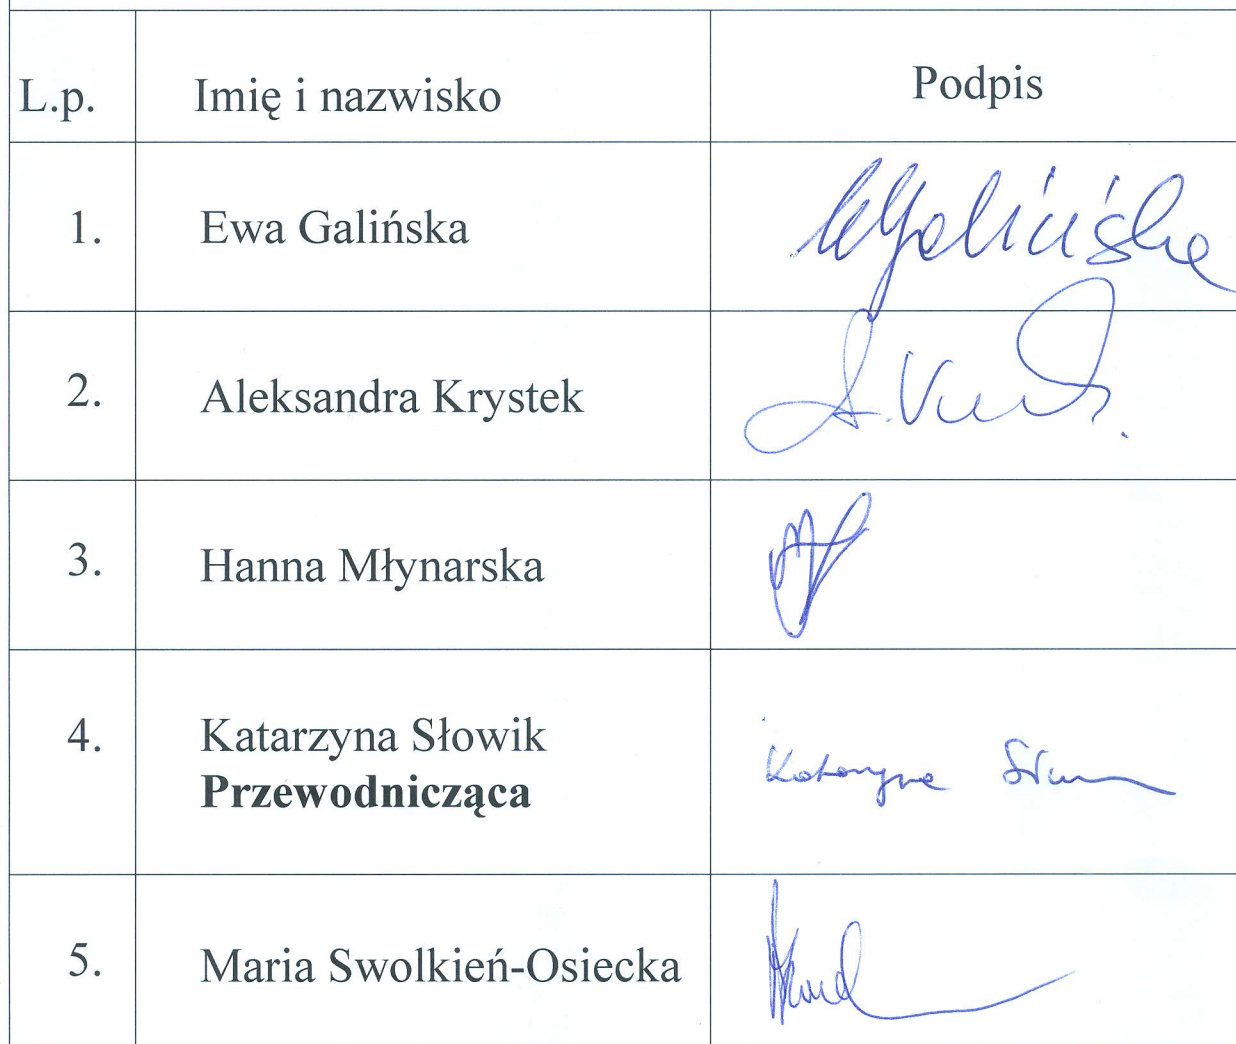 L.p. Imię i nazwisko Podpis
1. Ewa Galińska
2. Aleksandra Krystek
3. Hanna Młynarska
4. Katarzyna Słowik
Przewodnicząca
Katarzyna
5. Maria Swolkień-Osiecka